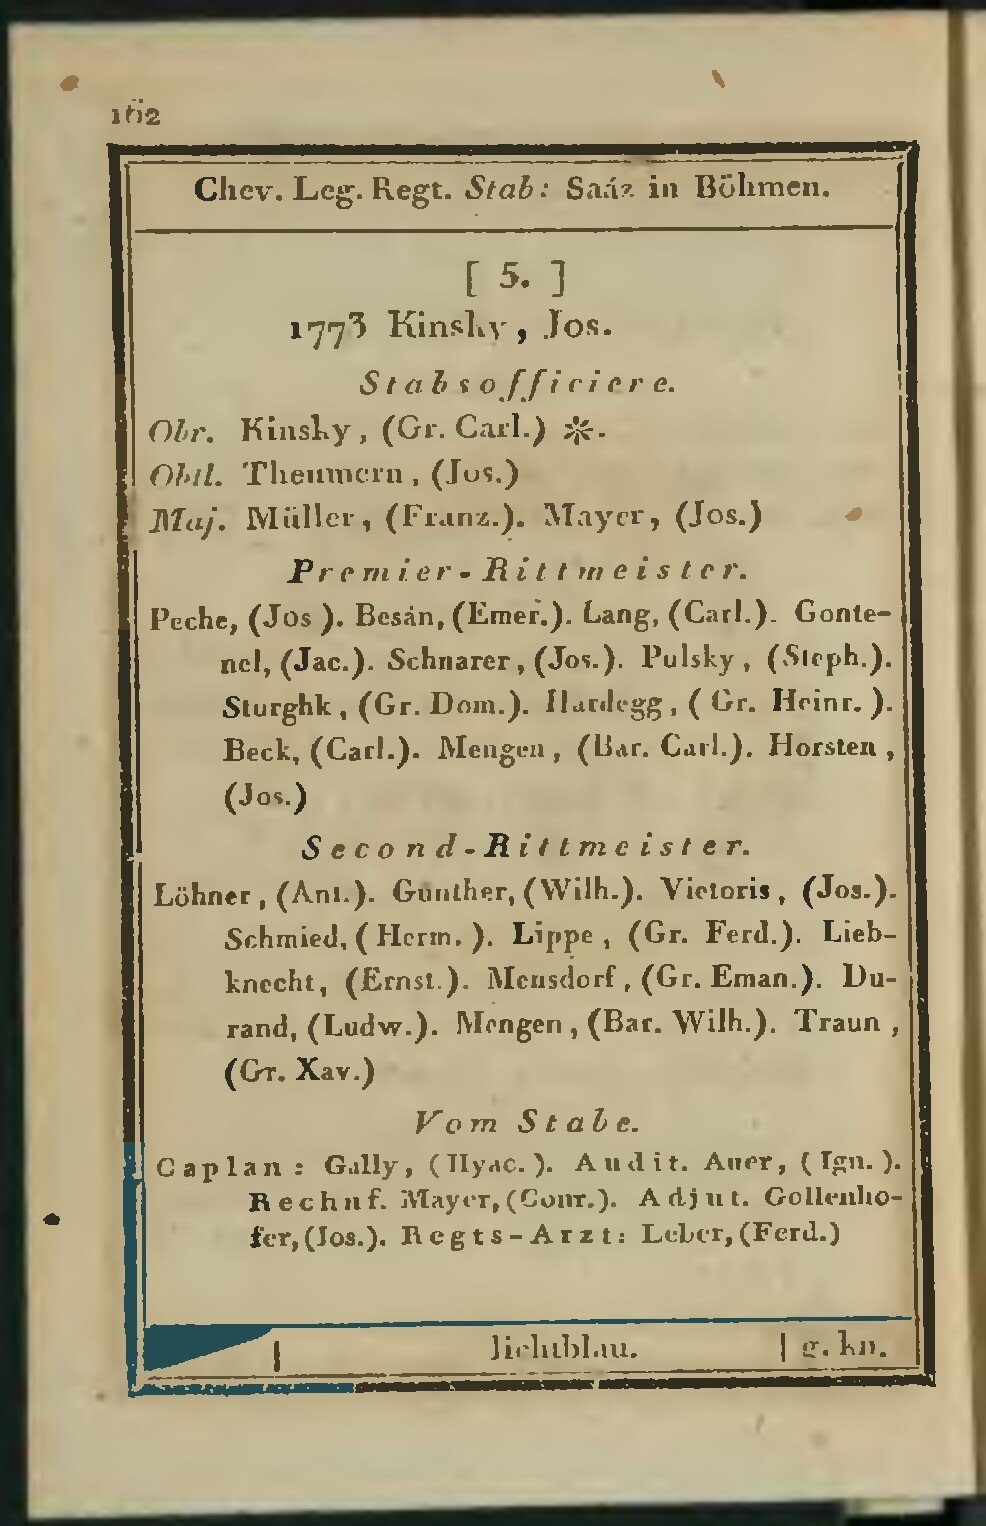 162
Chev. Leg. Regt. Stab: Saáz in Böhmen.
[ 5. ]
1773 Kinsky, Jos.
Stabsofficiere.
Obr. Kinsky, (Gr. Carl.) ✻.
Obtl. Theumern, (Jos.)
Maj. Müller, (Franz.). Mayer, (Jos.)
Premier-Rittmeister.
Peche, (Jos ). Besán, (Emer.). Lang, (Carl.). Gonte-
nel, (Jac.). Schnarer, (Jos.). Pulsky, (Steph.).
Sturghk, (Gr. Dom.). Hardegg, ( Gr. Heinr. ).
Beck, (Carl.). Mengen, (Bar. Carl.). Horsten,
(Jos.)
Second-Rittmeister.
Löhner, (Ant.). Günther, (Wilh.). Victoris, (Jos.).
Schmied, ( Herm. ). Lippe, (Gr. Ferd.). Lieb-
knecht, (Ernst.). Mensdorf, (Gr. Eman.). Du-
rand, (Ludw.). Mengen, (Bar. Wilh.). Traun,
(Gr. Xav.)
Vom Stabe.
Caplan: Gally, (Hyac. ). Audit. Auer, ( Ign. ).
Rechnf. Mayer, (Conr.). Adjut. Gollenho-
fer, (Jos.). Regts-Arzt: Leber, (Ferd.)
lichtblau. | g. kn.